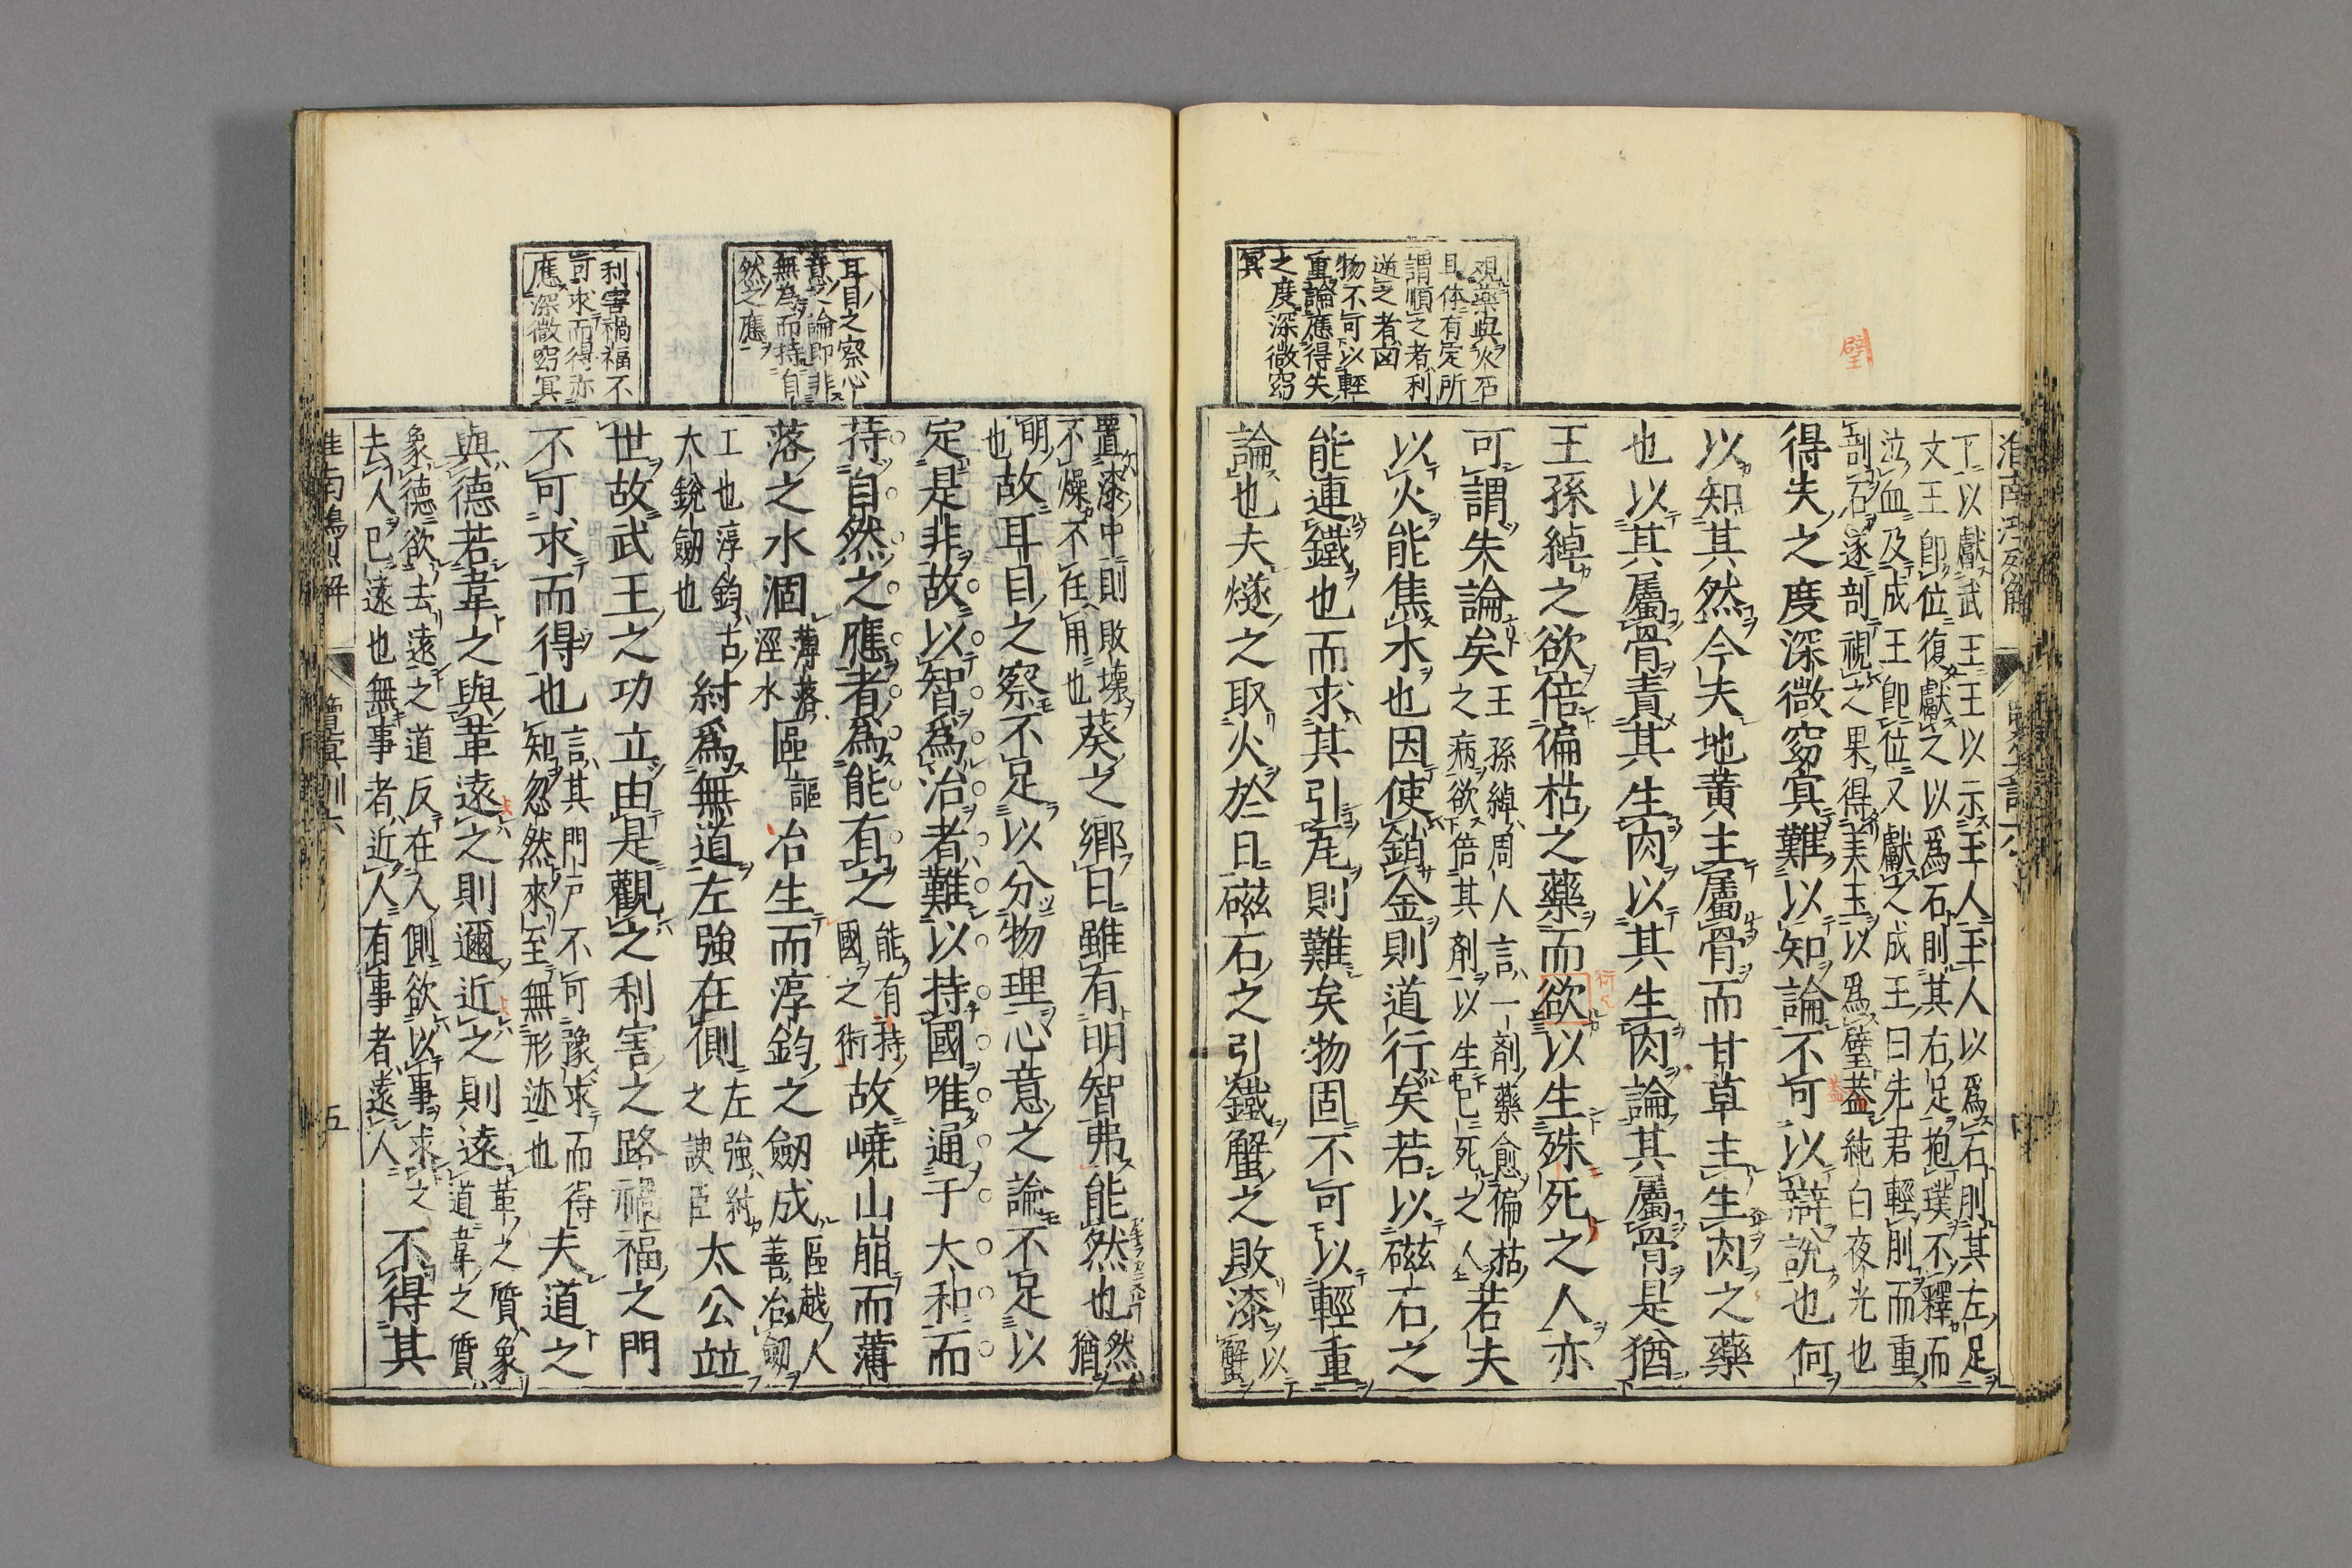 視藥與火石
且体有定所
謂順之者利
逆之者凶
物不可以輕
重論應得失
之度深微窈
冥
璧
淮南鴻烈解
工以獻武王王以示玉人玉人以爲石刖其左足
文王卽位復獻之以爲石刖其右足抱璞不釋而
泣血及成王卽位又獻之成王曰先君輕刖而重
剖石遂剖視之果得美玉以爲璧蓋純白夜光也
得失之度深微窈冥難以知論不可以辯說也何
以知其然今夫地黃主屬骨而甘草主生肉之藥
也以其屬骨責其生肉以其生肉論其屬骨是猶
王孫綽之欲倍偏枯之藥而欲以生殊死之人亦
衍
可謂失論矣
王孫綽周人言一劑藥愈偏枯
之病欲倍其劑以生已死之人
若夫
以火能焦木也因使銷金則道行矣若以磁石之
能連鐵也而求其引瓦則難矣物固不可以輕重
論也夫燧之取火於日磁石之引鐵蟹之敗漆
以
蟹
耳目之察心
意之論即非
無為而持自
然之應
利害禍福不
可求而得亦
應深微窈冥
置漆中則敗壞
不燥不任用也
葵之鄉日雖有明智弗能然也
然
猶
明
也
故耳目之察不足以分物理心意之論不足以
定是非故以智爲治者難以持國唯通于太和而
持自然之應者爲能有之
能有持
國之術
故嶢山崩而薄
落之水涸
薄落
涇水
區
謳
冶生而淳鈞之劒成
區越人
善冶劒
工也淳鈞古
大銳劒也
紂爲無道左強在側
左強紂
之諛臣
太公竝
世故武王之功立由是觀之利害之路禍福之門
不可求而得也
言其門戶不可豫求而得
知忽然來至無形迹也
夫道之
與德若韋之與革遠之則邇近之則遠
革之質象
道韋之質
象德欲去遠之道反在人側欲以事求之
去人已遠也無事者近人有事者遠人
不得其
淮南鴻烈解
覽冥訓六
五